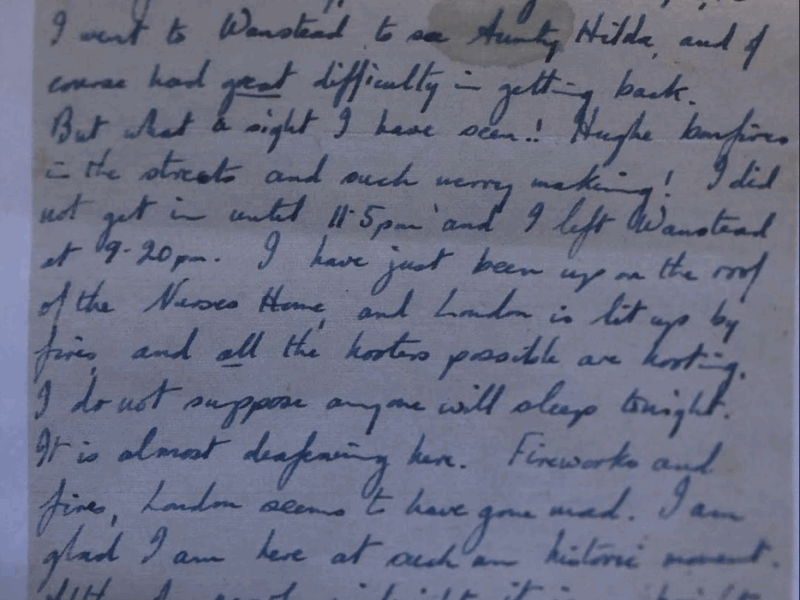 I went to Wanstead to see Aunty Hilda, and of
course had great difficulty in getting back.
But what a sight I have seen!! Hughe bonfires
in the streets and such merry making! I did
not get in until 11.5pm and I left Wanstead
at 9.20pm. I have just been up on the roof
of the Nurses Home, and London is lit up by
fires, and all the hooters possible are hooting.
I do not suppose anyone will sleep tonight.
It is almost deafening here. Fireworks and
fires, London seems to have gone mad. I am
glad I am here at such an historic moment.